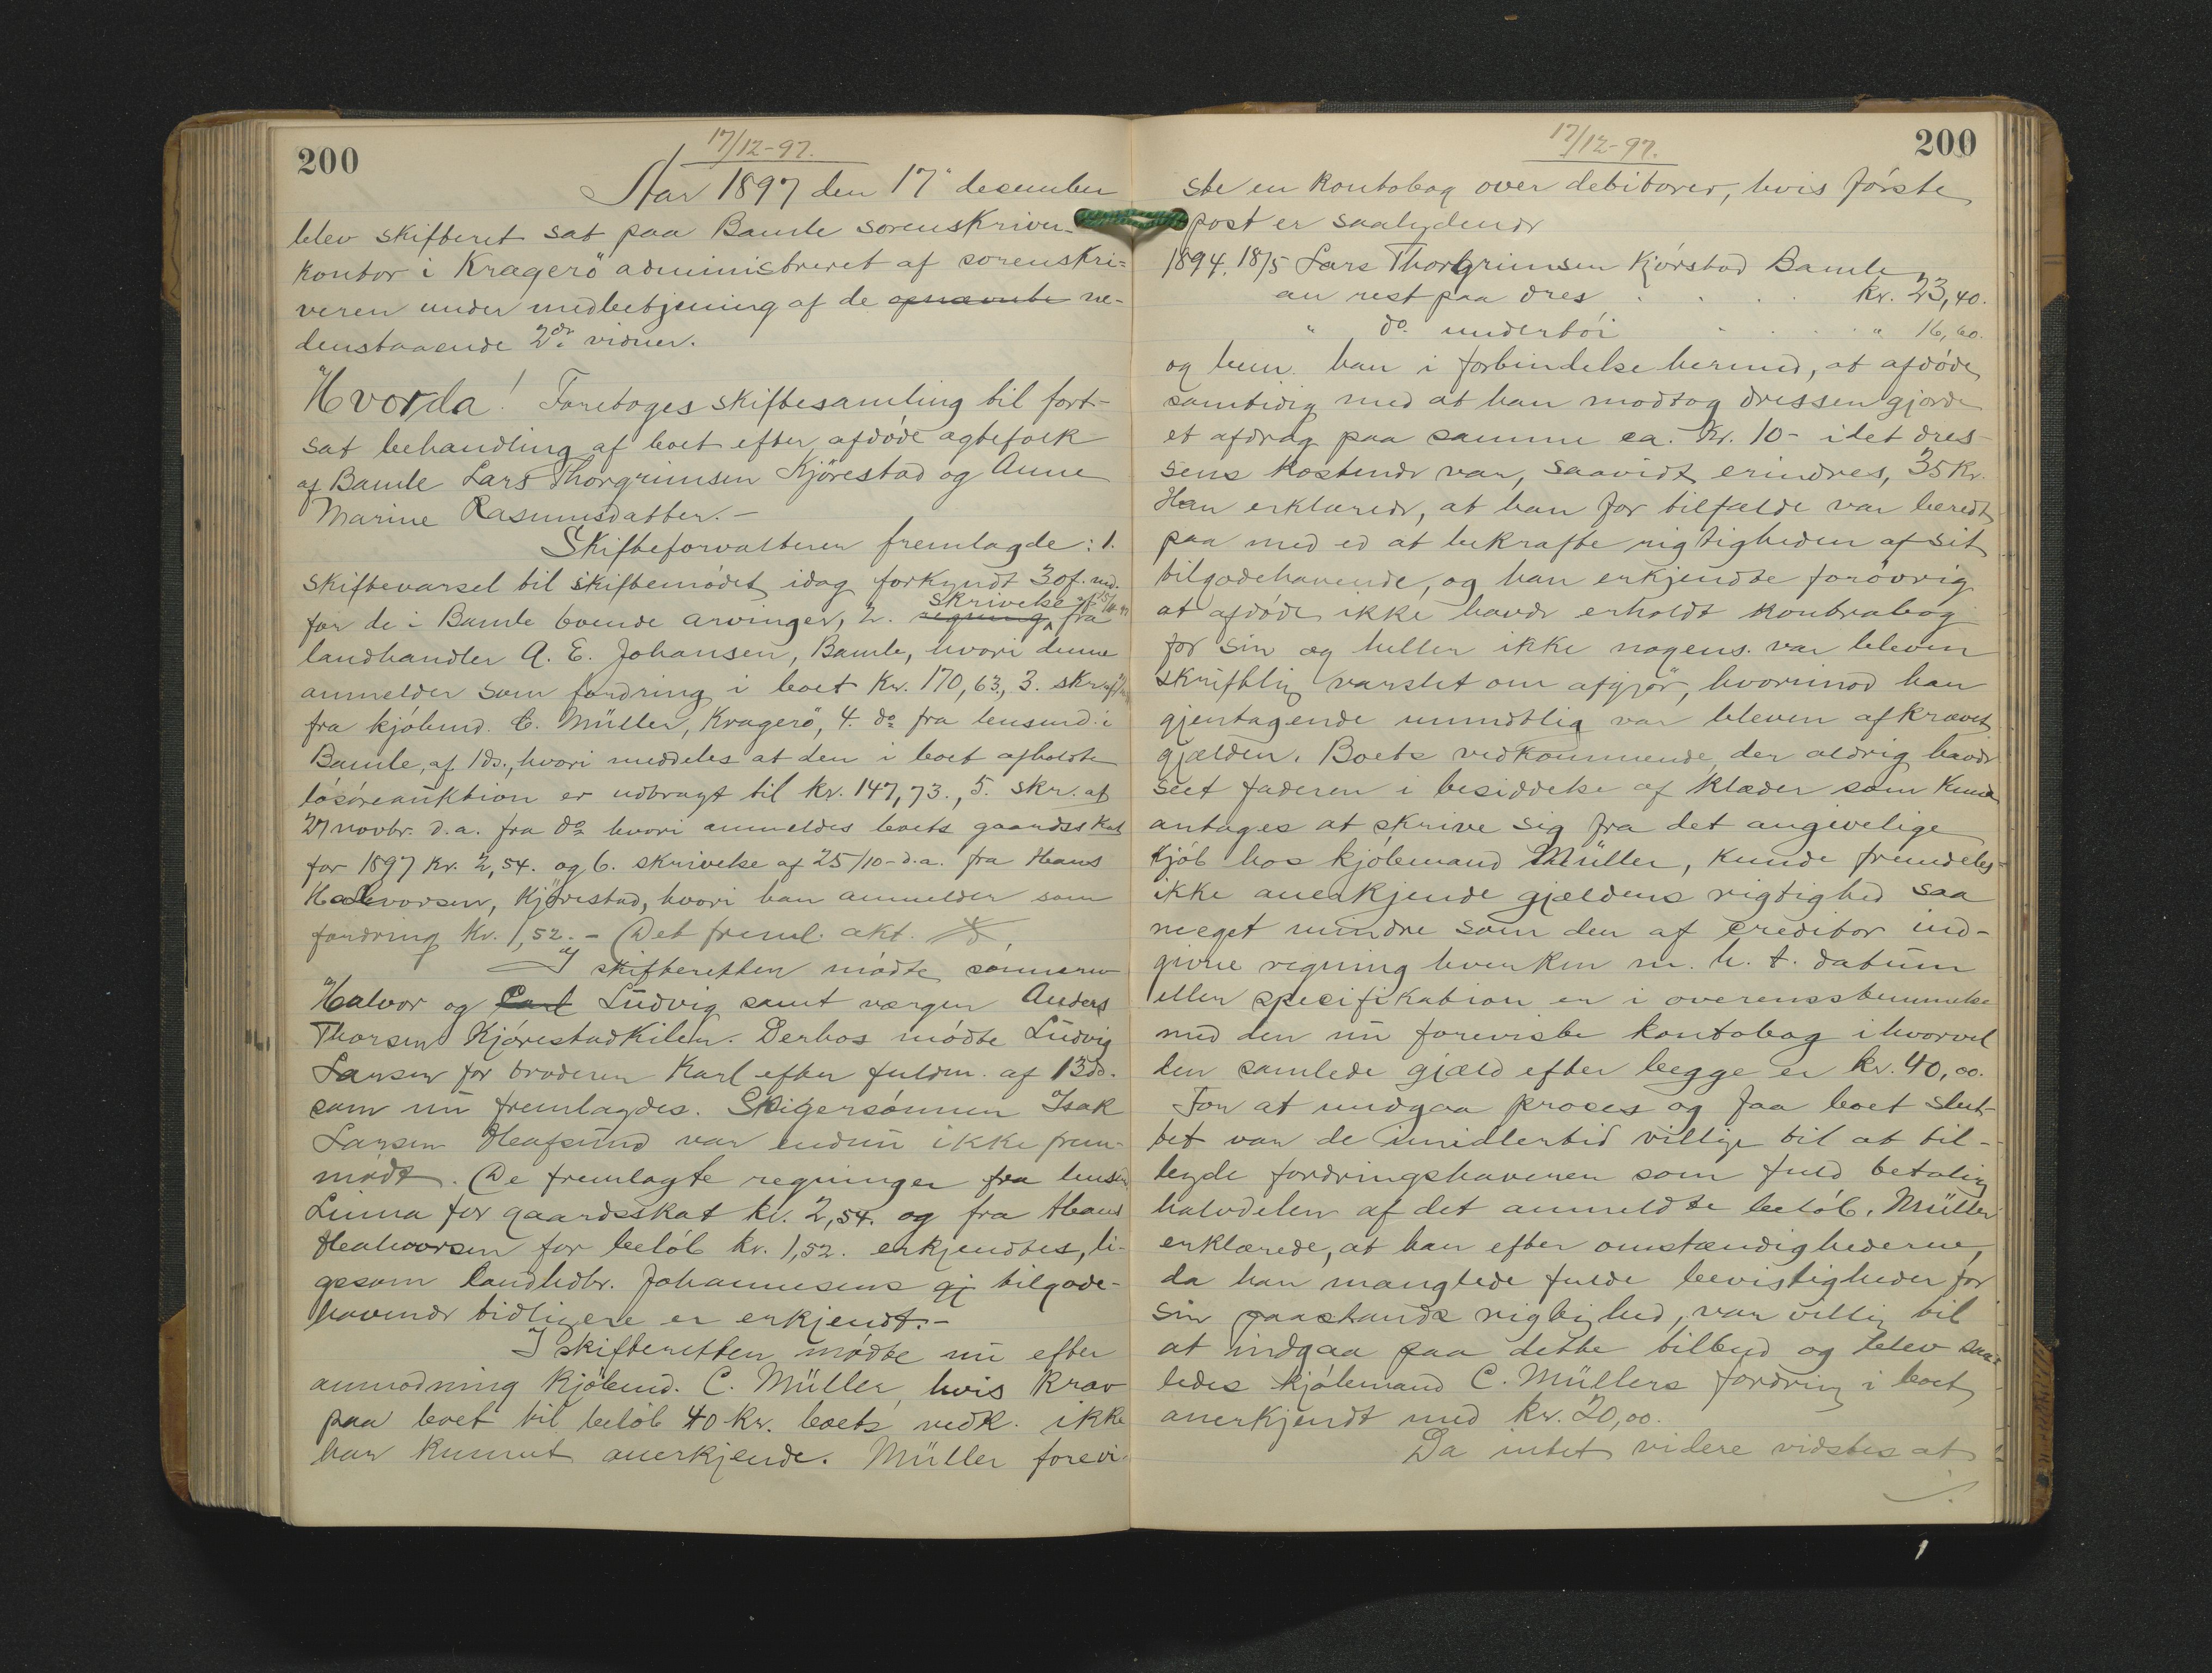 200
17/12-97.
Aar 1897 den 17de desember
blev skifteret sat paa Bamle sorenskriver-
kontor i Kragerö administreret af sorenskri=
veren under medbetjening af de opnævnte ne-
denstaaende 2de vidner.
Hvorda! Foretoges skiftesamling til fort-
sat behandling af boet efter afdöde ægtefolk
af Bamle Lars Thorgrimsen Kjörestad og Anne
Marine Rasmusdatter. -
Skifteforvalteren fremlagde: 1.
skiftevarsel til skiftemödet idag forkyndt 30 f. md.
for de i Bamle boende arvinger, 2. regning skrivelse af 15/11 fra
landhandler A. E. Johansen, Bamle, hvori denne
anmelder som fordring i boet Kr. 170,63., 3. skr. af
fra kjöbmd. C. Müller, Kragerö, 4. do fra lensmd. i
Bamle, af 1 ds., hvori meddeles at den i boet afholdte
lösöreauktion er udbragt til kr. 147,73., 5. skr. af
27 novbr. d.a. fra do hvori anmeldes boets gaardsskat
for 1897 kr. 2,54. og 6. skrivelse af 25/10-d.a. fra Hans
Halvorsen, Kjörestad, hvori han anmelder som
fordring kr. 1,52. - Det freml. akt.
I skifteretten mödte sönnerne
Halvor og Carl Ludvig samt værgen Anders
Thorsen Kjörestadkilen. Derhos mödte Ludvig
Larsen for broderen Karl efter fuldm. af 13 ds.
som nu fremlagdes. Svigersönnen Isak
Larsen Hafsund var endnu ikke frem-
mödt. De fremlagte regninger fra lensm.
Linna for gaardsskat kr. 2,54. og fra Hans
Halvorsen for belöb kr. 1,52. erkjendtes, li-
gesom landhdlr. Johannesens gj tilgode-
havende tidligere er erkjendt. -
I skifteretten mödte nu efter
anmodning kjöbmd. C. Müller, hvis krav
paa boet til belöb 40 kr. boets vedk. ikke
har kunnet anerkjende. Müller forevi-
17/12-97.
200
ste en kontobog over debitorer, hvis förste
post er saalydende
1894. 18/5 Lars Thorgrimsen Kjörstad Bamle
an rest paa dres . . . . kr. 23,40.
" do. undertöi . . . . " 16,60.
og hen han i forbindelse hermed, at afdöde
samtidig med at han modtog dressen gjorde
et afdrag paa samme ca. Kr. 10- idet dres-
sens kostende var, saavidt erindres, 35 Kr.
Han erklærede, at han for tilfælde var beredt
paa med ed at bekræfte rigtigheden af sit
tilgodehavende, og han erkjendte foróvrig
at afdöde ikke havde erholdt kontrabog
for sin og heller ikke nogens. var bleven
skriftlig varslet om afgjør, hvorimod han
gjentagende mundtlig var bleven afkrævet
gjælden. Boets vedkommende, der aldrig havde
seet faderen i besiddelse af klæder som kunde
antages at skrive sig fra det angivelige
kjöb hos kjöbmand Müller, kunde fremdeles
ikke anerkjende gjældens rigtighed saa
meget mindre som den af creditor ind-
givne regning hverken m. h. t. datum
eller specifikation er i overensstemmelse
med den nu foreviste kontobog ihvorvel
den samlede gjæld efter begge er kr. 40,00.
For at undgaa proces og faa boet slut-
tet var de imidlertid villige til at til-
byde fordringshaveren som fuld betaling
halvdelen af det anmeldte belöb. Müller
erklærede, at han efter omstændighederne,
da han manglede fulde bevisligheder for
sin paastands rigtighed, var villig til
at indgaa paa dette tilbud og blev saa=
ledes kjöbmand C. Müllers fordring i boet
anerkjendt med kr. 20,00.
Da intet videre vidstes at